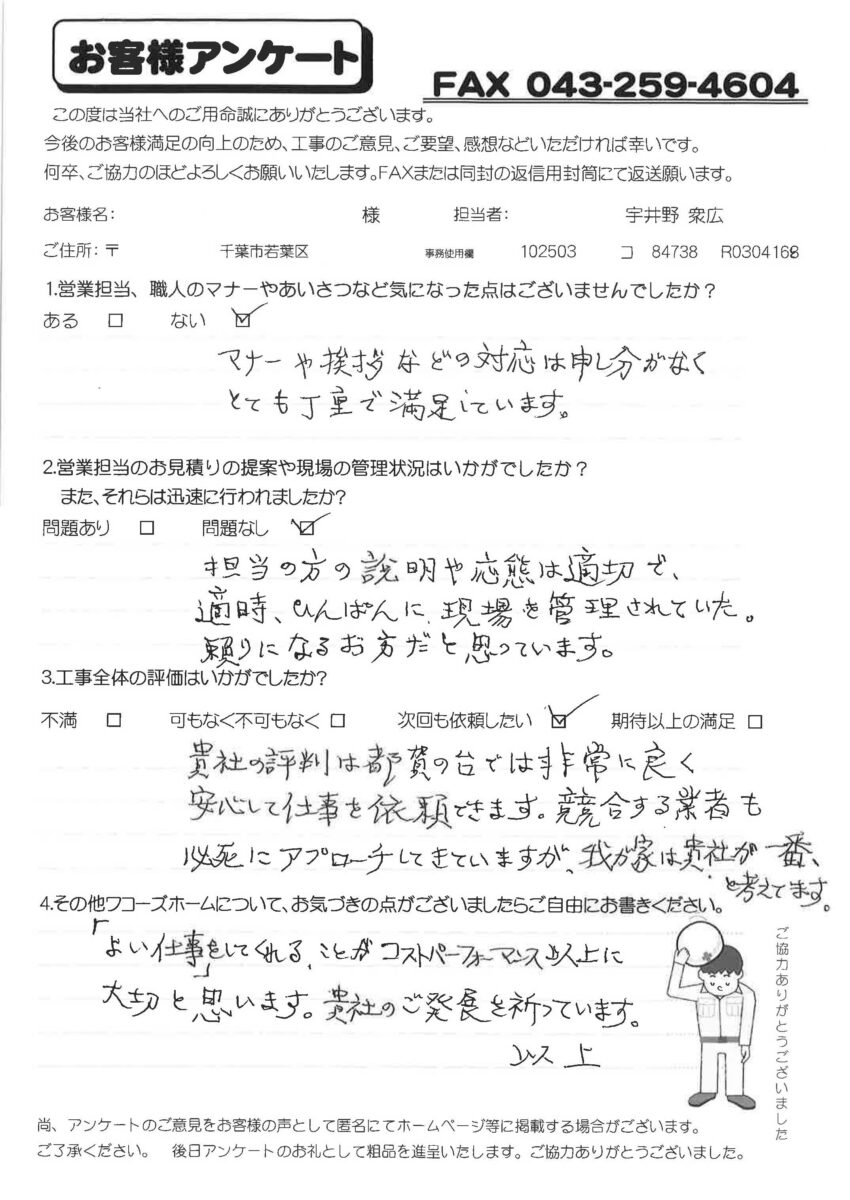 お客様アンケート
FAX 043-259-4604
この度は当社へのご用命誠にありがとうございます。
今後のお客様満足の向上のため、工事のご意見、ご要望、感想などいただければ幸いです。
何卒、ご協力のほどよろしくお願いいたします。FAXまたは同封の返信用封筒にて返送願います。
お客様名: 様 担当者: 宇井野 衆広
ご住所:〒 千葉市若葉区 事務使用欄 102503 コ 84738 R0304168
1.営業担当、職人のマナーやあいさつなど気になった点はございませんでしたか?
ある □ ない ☑
マナーや挨拶などの対応は申し分がなく
とても丁重で満足しています。
2.営業担当のお見積りの提案や現場の管理状況はいかがでしたか?
また、それらは迅速に行われましたか?
問題あり □ 問題なし ☑
担当の方の説明や応態は適切で、
適時、ひんぱんに現場を管理されていた。
頼りになるお方だと思っています。
3.工事全体の評価はいかがでしたか?
不満 □ 可もなく不可もなく □ 次回も依頼したい ☑ 期待以上の満足 □
貴社の評判は都賀の台では非常に良く
安心して仕事を依頼できます。競合する業者も
必死にアプローチしてきていますが、我が家は貴社が一番、
と考えてます。
4.その他ワコーズホームについて、お気づきの点がございましたらご自由にお書きください。
「よい仕事をしてくれる」ことがコストパーフォーマンス以上に
大切と思います。貴社のご発展を祈っています。
以上
ご協力ありがとうございました
尚、アンケートのご意見をお客様の声として匿名にてホームページ等に掲載する場合がございます。
ご了承ください。 後日アンケートのお礼として粗品を進呈いたします。ご協力ありがとうございました。